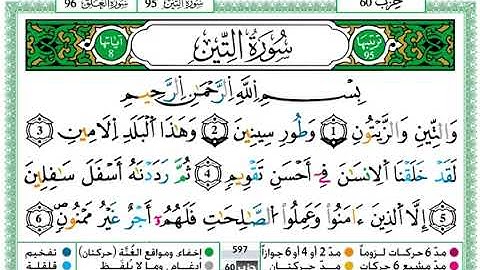 سُورَةُ العَلَق 96 سُورَةُ التِّين 95 حِزْب 60
تَرْتِيبُهَا 95 سُورَةُ التِّينِ آيَاتُهَا 8
بِسْمِ اللَّهِ الرَّحْمَٰنِ الرَّحِيمِ
وَالتِّينِ وَالزَّيْتُونِ 1 وَطُورِ سِينِينَ 2 وَهَٰذَا الْبَلَدِ الْأَمِينِ 3
لَقَدْ خَلَقْنَا الْإِنسَانَ فِي أَحْسَنِ تَقْوِيمٍ 4 ثُمَّ رَدَدْنَاهُ أَسْفَلَ سَافِلِينَ
5 إِلَّا الَّذِينَ ءَامَنُوا وَعَمِلُوا الصَّالِحَاتِ فَلَهُمْ أَجْرٌ غَيْرُ مَمْنُونٍ 6
مدّ 6 حركات لزوماً مدّ 2 أو 4 أو 6 جوازاً 597 إخفاء، ومواقع الغُنَّة (حركتان) تفخيم
مدّ حركتان 60 إدغام، وما لا يُلفَظ قلقلة